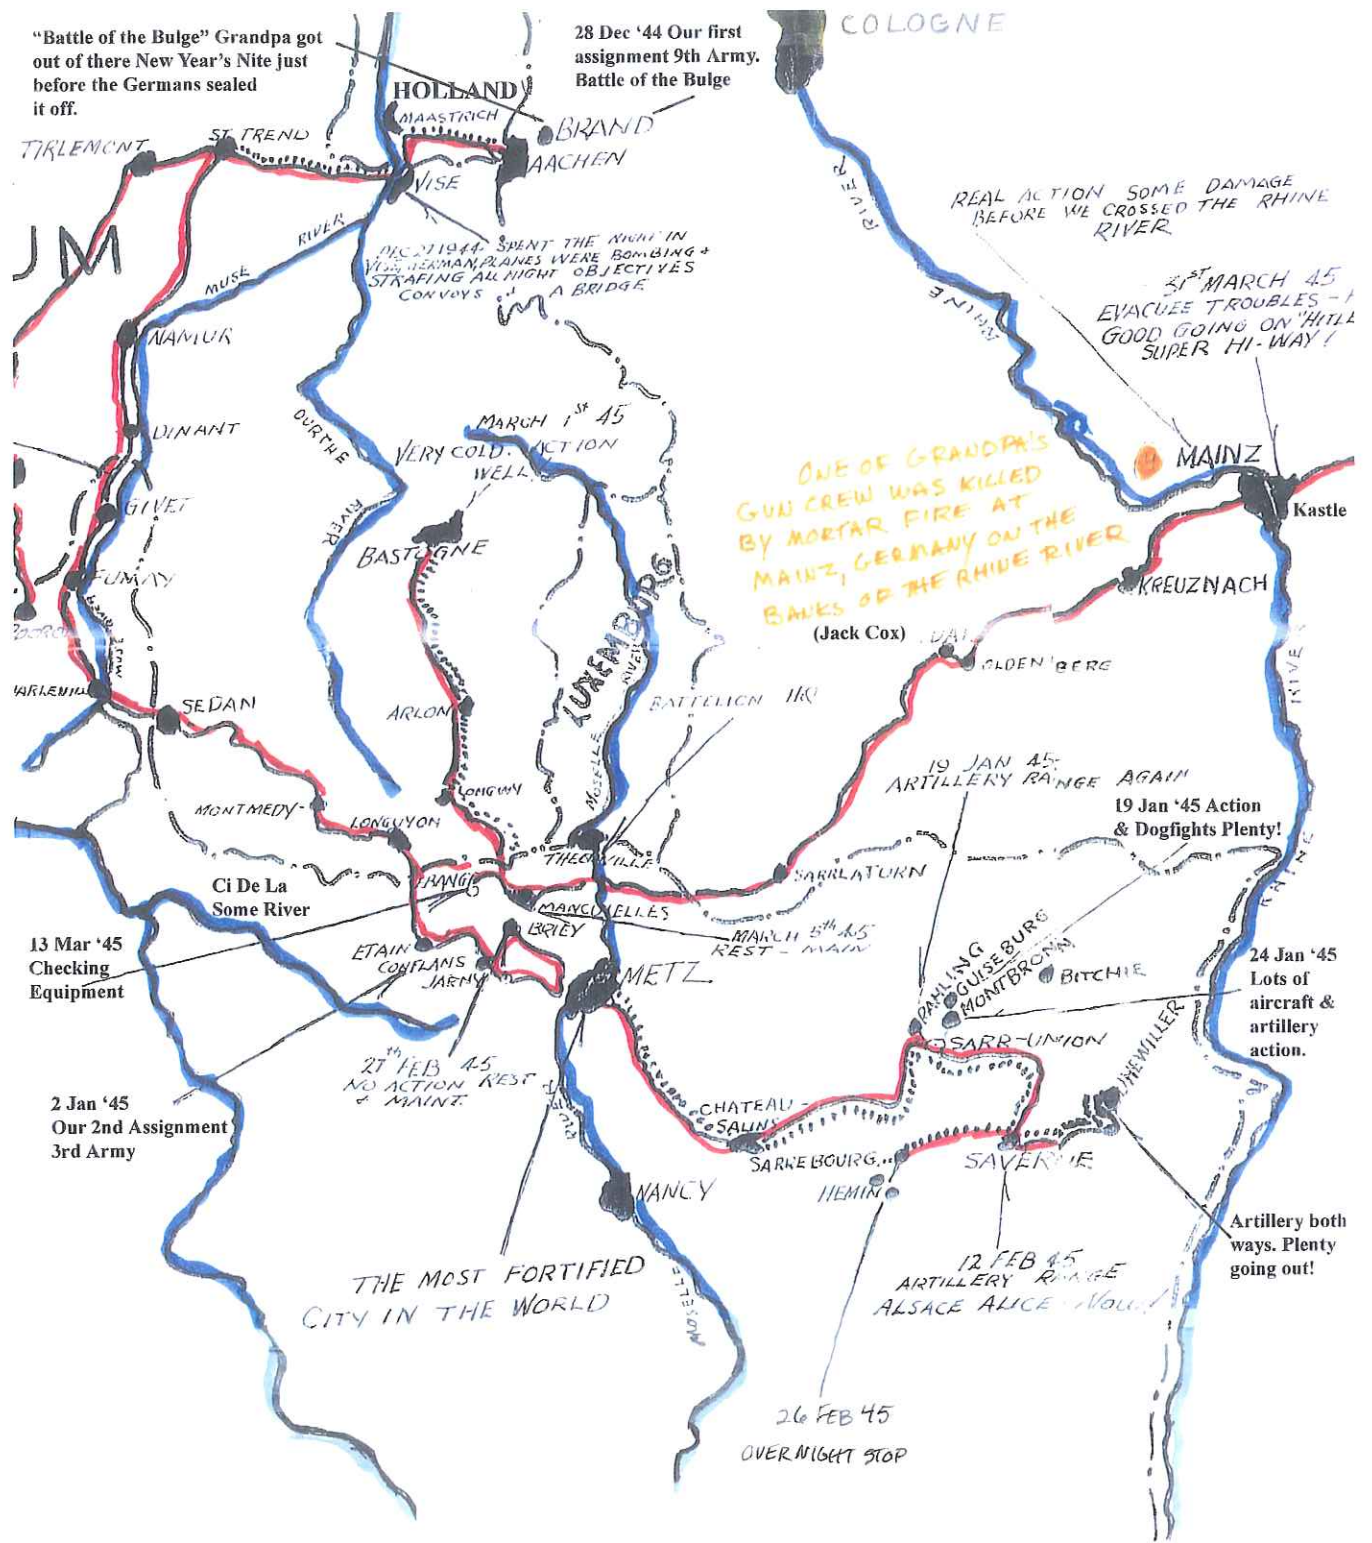 “Battle of the Bulge” Grandpa got
out of there New Year’s Nite just
before the Germans sealed
it off.
28 Dec ‘44 Our first
assignment 9th Army.
Battle of the Bulge
COLOGNE
HOLLAND
MAASTRICH
BRAND
AACHEN
TIRLEMONT
ST. TREND
VISE
UM
MUSE
RIVER
DEC 21 1944- SPENT THE NIGHT IN
VISE, GERMAN PLANES WERE BOMBING &
STRAFING ALL NIGHT OBJECTIVES
CONVOYS A BRIDGE
RIVER
RHINE
REAL ACTION SOME DAMAGE
BEFORE WE CROSSED THE RHINE
RIVER
31ST MARCH 45
EVACUEE TROUBLES -
GOOD GOING ON "HITLE
SUPER HI-WAY!
NAMUR
DINANT
OURTHE
RIVER
MARCH 1ST 45
VERY COLD. ACTION
WELL
ONE OF GRANDPA'S
GUN CREW WAS KILLED
BY MORTAR FIRE AT
MAINZ, GERMANY ON THE
BANKS OF THE RHINE RIVER
(Jack Cox)
MAINZ
Kastle
GIVET
BASTOGNE
FUMAY
MUSE RIVER
KREUZNACH
LUXEMBURG
OLDEN'BERG
RIVER
RHINE
SEDAN
ARLON
MOSELLE
RIVER
BATTELION HQ
MONTMEDY-
LONGWY
LONGUYON
19 JAN 45.
ARTILLERY RANGE AGAIN
19 Jan ‘45 Action
& Dogfights Plenty!
THEONVILLE
SARRLATURN
Ci De La
Some River
MANCIUELLES
BRIEY
MARCH 5th 45
REST - MAIN
13 Mar ‘45
Checking
Equipment
ETAIN
CONFLANS
JARNY
METZ
PAHLING
GUISEBURG
MONTBRONN
BITCHIE
24 Jan ‘45
Lots of
aircraft &
artillery
action.
SARR-UNION
27th FEB 45
NO ACTION REST
& MAINT.
2 Jan ‘45
Our 2nd Assignment
3rd Army
CHATEAU-
SALINS
SARREBOURG
SAVERNE
HEMIN
NANCY
Artillery both
ways. Plenty
going out!
THE MOST FORTIFIED
CITY IN THE WORLD
MOSELLE
12 FEB 45
ARTILLERY RANGE
ALSACE ALICE - NOW!
26 FEB 45
OVERNIGHT STOP